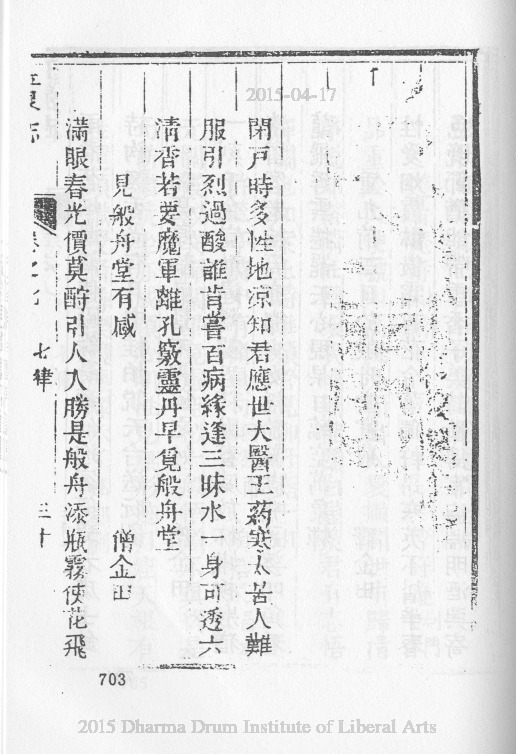 2015-04-17
閉戶時多性地凉知君應世大醫王葯寒太苦人難
服引烈過酸誰肯嘗百病緣逢三昧水一身可透六
清香若要魔軍離孔竅靈丹早覓般舟堂
見般舟堂有感 僧金
滿眼春光價莫酧引人入勝是般舟添瓶霧使花飛
卷之九 七律 三十
703
2015 Dharma Drum Institute of Liberal Arts